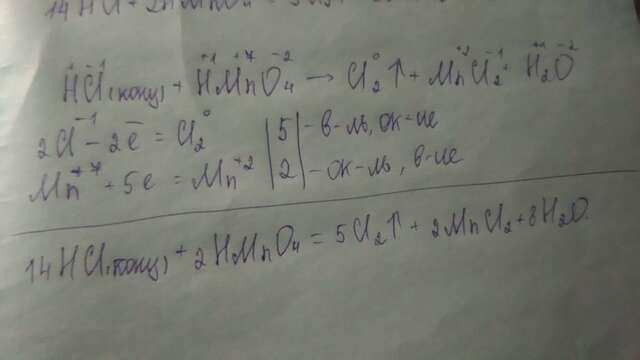 14HCl + 2HMnO₄ =
H⁺¹Cl⁻¹(конц) + H⁺¹Mn⁺⁷O₄⁻² → Cl₂⁰↑ + Mn⁺²Cl₂⁻¹ H₂⁺¹O⁻²
2Cl⁻¹ - 2e̅ = Cl₂⁰ | 5 | - в-ль, ок-ие
Mn⁺⁷ + 5e = Mn⁺² | 2 | - ок-ль, в-ие
14HCl(конц) + 2HMnO₄ = 5Cl₂↑ + 2MnCl₂ + 8H₂O.